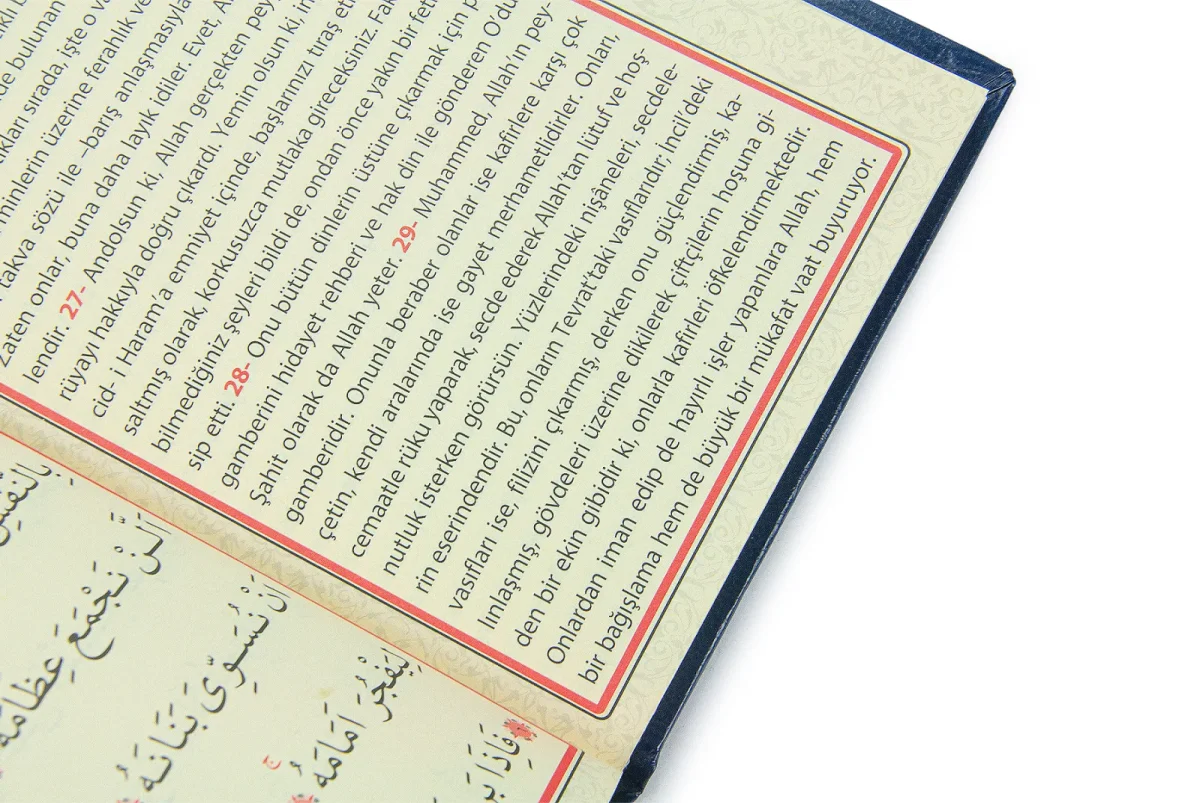 de bulunan
ukları sırada, işte o va
minlerin üzerine ferahlık ve
takva sözü ile –barış anlaşmasıyla
Zaten onlar, buna daha layık idiler. Evet, A
lendir. 27- Andolsun ki, Allah gerçekten pey
rüyayı hakkıyla doğru çıkardı. Yemin olsun ki,
cid- i Haram'a emniyet içinde, başlarınızı tıraş et
saltmış olarak, korkusuzca mutlaka gireceksiniz. Fak
bilmediğiniz şeyleri bildi de, ondan önce yakın bir feti
sip etti. 28- Onu bütün dinlerin üstüne çıkarmak için p
gamberini hidayet rehberi ve hak din ile gönderen O'du
Şahit olarak da Allah yeter 29- Muhammed, Allah'ın pey-
gamberidir. Onunla beraber olanlar ise kafirlere karşı çok
çetin, kendi aralarında ise gayet merhametidirler. Onları,
cemaatle rüku yaparak, secde ederek Allah'tan lütuf ve hoş-
nutluk isterken görürsün. Yüzlerindeki nişâneleri, secdele-
rin eserindendir. Bu, onların Tevrat'taki vasıflarıdır; İncil'deki
vasıfları ise, filizini çıkarmış, derken onu güçlendirmiş, ka-
lınlaşmış, gövdeleri üzerine dikilerek çiftçilerin hoşuna gi-
den bir ekin gibidir ki, onlarla kafirleri öfkelendirmektedir.
Onlardan iman edip de hayırlı işler yapanlara Allah, hem
bir bağışlama hem de büyük bir mükafat vaat buyuruyor.
بِالنَّفْسِ
اَلَّنْ نَجْمَعَ عِظَامَهُ
اَنْ نُسَوِّىَ بَنَانَهُ
لِيَفْجُرَ اَمَامَهُ
فَاِذَا